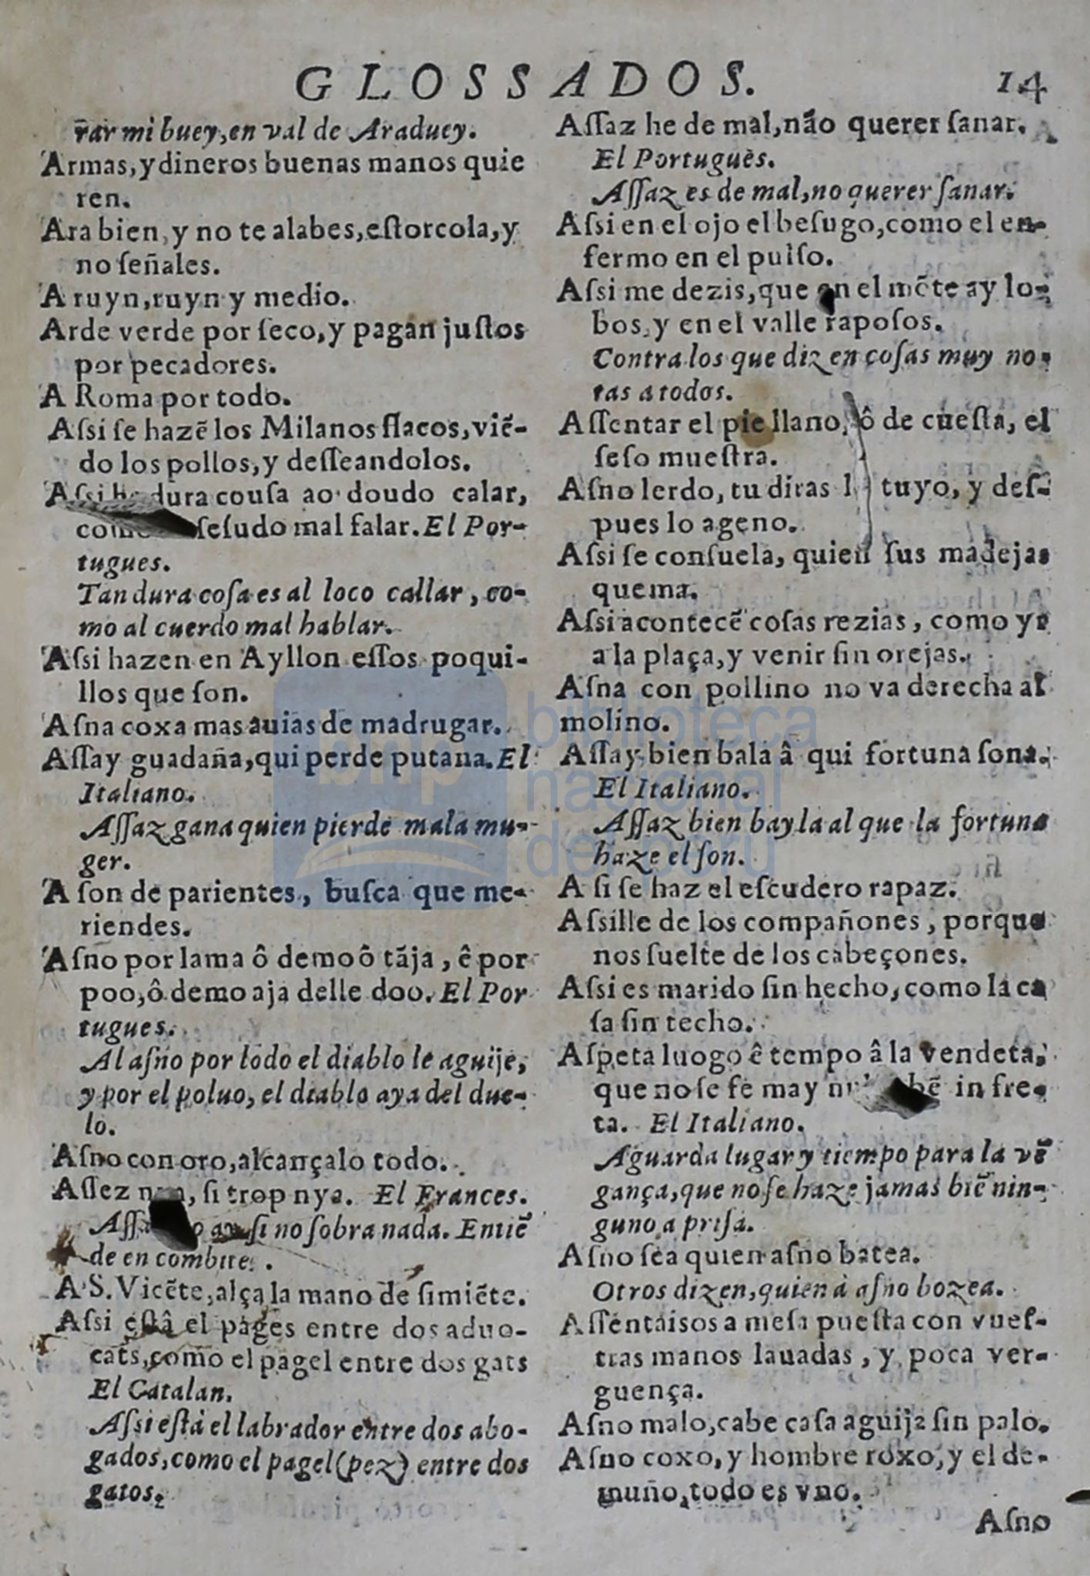 GLOSSADOS. 14
rar mi buey, en val de Araduey.
Armas, y dineros buenas manos quie
ren.
Ara bien, y no te alabes, estorcola, y
no señales.
A ruyn, ruyn y medio.
Arde verde por seco, y pagan justos
por pecadores.
A Roma por todo.
Assi se hazẽ los Milanos flacos, viẽ-
do los pollos, y desseandolos.
Assi he dura cousa ao doudo calar,
sesudo mal falar. El Por-
tugues.
Tan dura cosa es al loco callar, co-
mo al cuerdo mal hablar.
Assi hazen en Ayllon essos poqui-
llos que son.
Asna coxa mas auias de madrugar.
Assay guadaña, qui perde putana. El
Italiano.
Assaz gana quien pierde mala mu-
ger.
A son de parientes, busca que me-
riendes.
Asno por lama ô demo ô tãja, ê por
poo, ô demo aja delle doo. El Por
tugues.
Al asno por lodo el diablo le aguije,
y por el poluo, el diablo aya del due-
lo.
Asno con oro, alcançalo todo.
Assez si trop nya. El Frances.
si no sobra nada. Entiẽ
de en combite.
A S. Vicẽte, alça la mano de simiẽte.
Assi està el pages entre dos aduo-
cats, como el pagel entre dos gats
El Catalan.
Assi està el labrador entre dos abo-
gados, como el pagel (pez) entre dos
gatos.
Assaz he de mal, não querer sanar.
El Portuguès.
Assaz es de mal, no querer sanar.
Assi en el ojo el besugo, como el en-
fermo en el pulso.
Assi me dezis, que en el mõte ay lo-
bos, y en el valle raposos.
Contra los que dizen cosas muy no-
tas a todos.
Assentar el pie llano, ô de cuesta, el
seso muestra.
Asno lerdo, tu diras tuyo, y des-
pues lo ageno.
Assi se consuela, quien sus madejas
quema.
Assi acontecẽ cosas rezias, como yr
a la plaça, y venir sin orejas.
Asna con pollino no va derecha al
molino.
Assay bien bala â qui fortuna sona.
El Italiano.
Assaz bien bayla al que la fortuna
haze el son.
A si se haz el escudero rapaz.
Assille de los compañones, porque
nos suelte de los cabeçones.
Assi es marido sin hecho, como la ca
sa sin techo.
Aspeta luogo ê tempo â la vendeta,
que no se fe may bẽ in fre-
ta. El Italiano.
Aguarda lugar y tiempo para la vẽ
gança, que no se haze jamas biẽ nin-
guno a prisa.
Asno sea quien asno batea.
Otros dizen, quien à asno bozea.
Assentaisos a mesa puesta con vues-
tras manos lauadas, y poca ver-
guença.
Asno malo, cabe casa aguija sin palo.
Asno coxo, y hombre roxo, y el de-
muño, todo es vno.
Asno
biblioteca
nacional
del perú